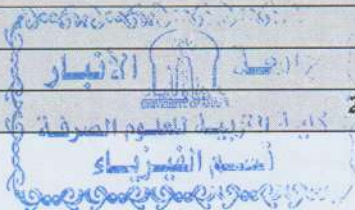 جامعة الأنبار
UNIVERSITY OF ANBAR
2
كلية التربية للعلوم الصرفة
قسم الفيزياء